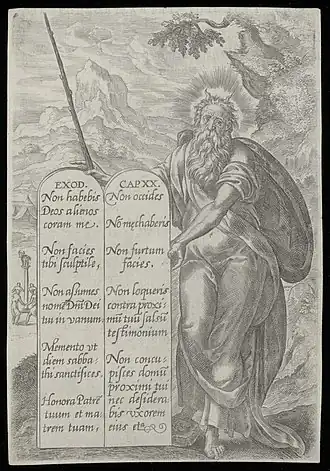 EXOD.
Non habebis
Deos alienos
coram me.
Non facies
tibi sculptile,
Non assumes
nome Dñi Dei
tui in vanum.
Memento vt
diem sabba-
thi sanctifices.
Honora Patrē
tuum et ma
trem tuam,
CAP.XX.
Non occides
Nō mechaberis
Non furtum
facies.
Non loqueris
contra proxi-
mū tuū falsū
testimonium
Non concu-
pisces domū
proximi tui
nec desidera
bis vxorem
eius etc.